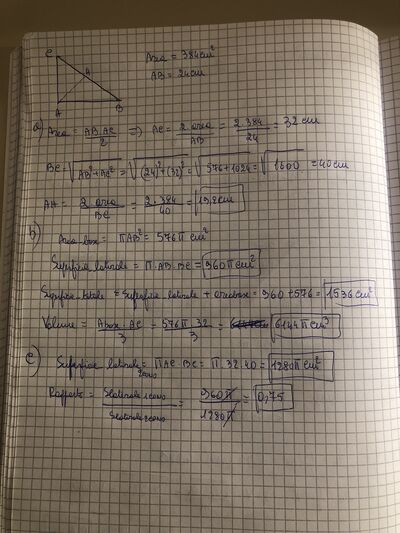 C
Area = 384 cm²
AB = 24 cm
H
A B
a) Area = AB·AC / 2 => AC = 2·area / AB = 2·384 / 24 = 32 cm
BC = √(AB²+AC²) = √((24)²+(32)²) = √(576+1024) = √1600 = 40 cm
AH = 2·area / BC = 2·384 / 40 = 19,2 cm
b)
Area base = πAB² = 576π cm²
Superficie laterale = π·AB·BC = 960π cm²
Superficie totale = Superficie laterale + area base = 960+576 = 1536 cm²
Volume = Abase·AC / 3 = 576π·32 / 3 = 6144π cm³
c) Superficie laterale = πAC·BC = π·32·40 = 1280π cm²
Rapporto = Slaterale cono / Slaterale cono = 960π / 1280π = 0,75